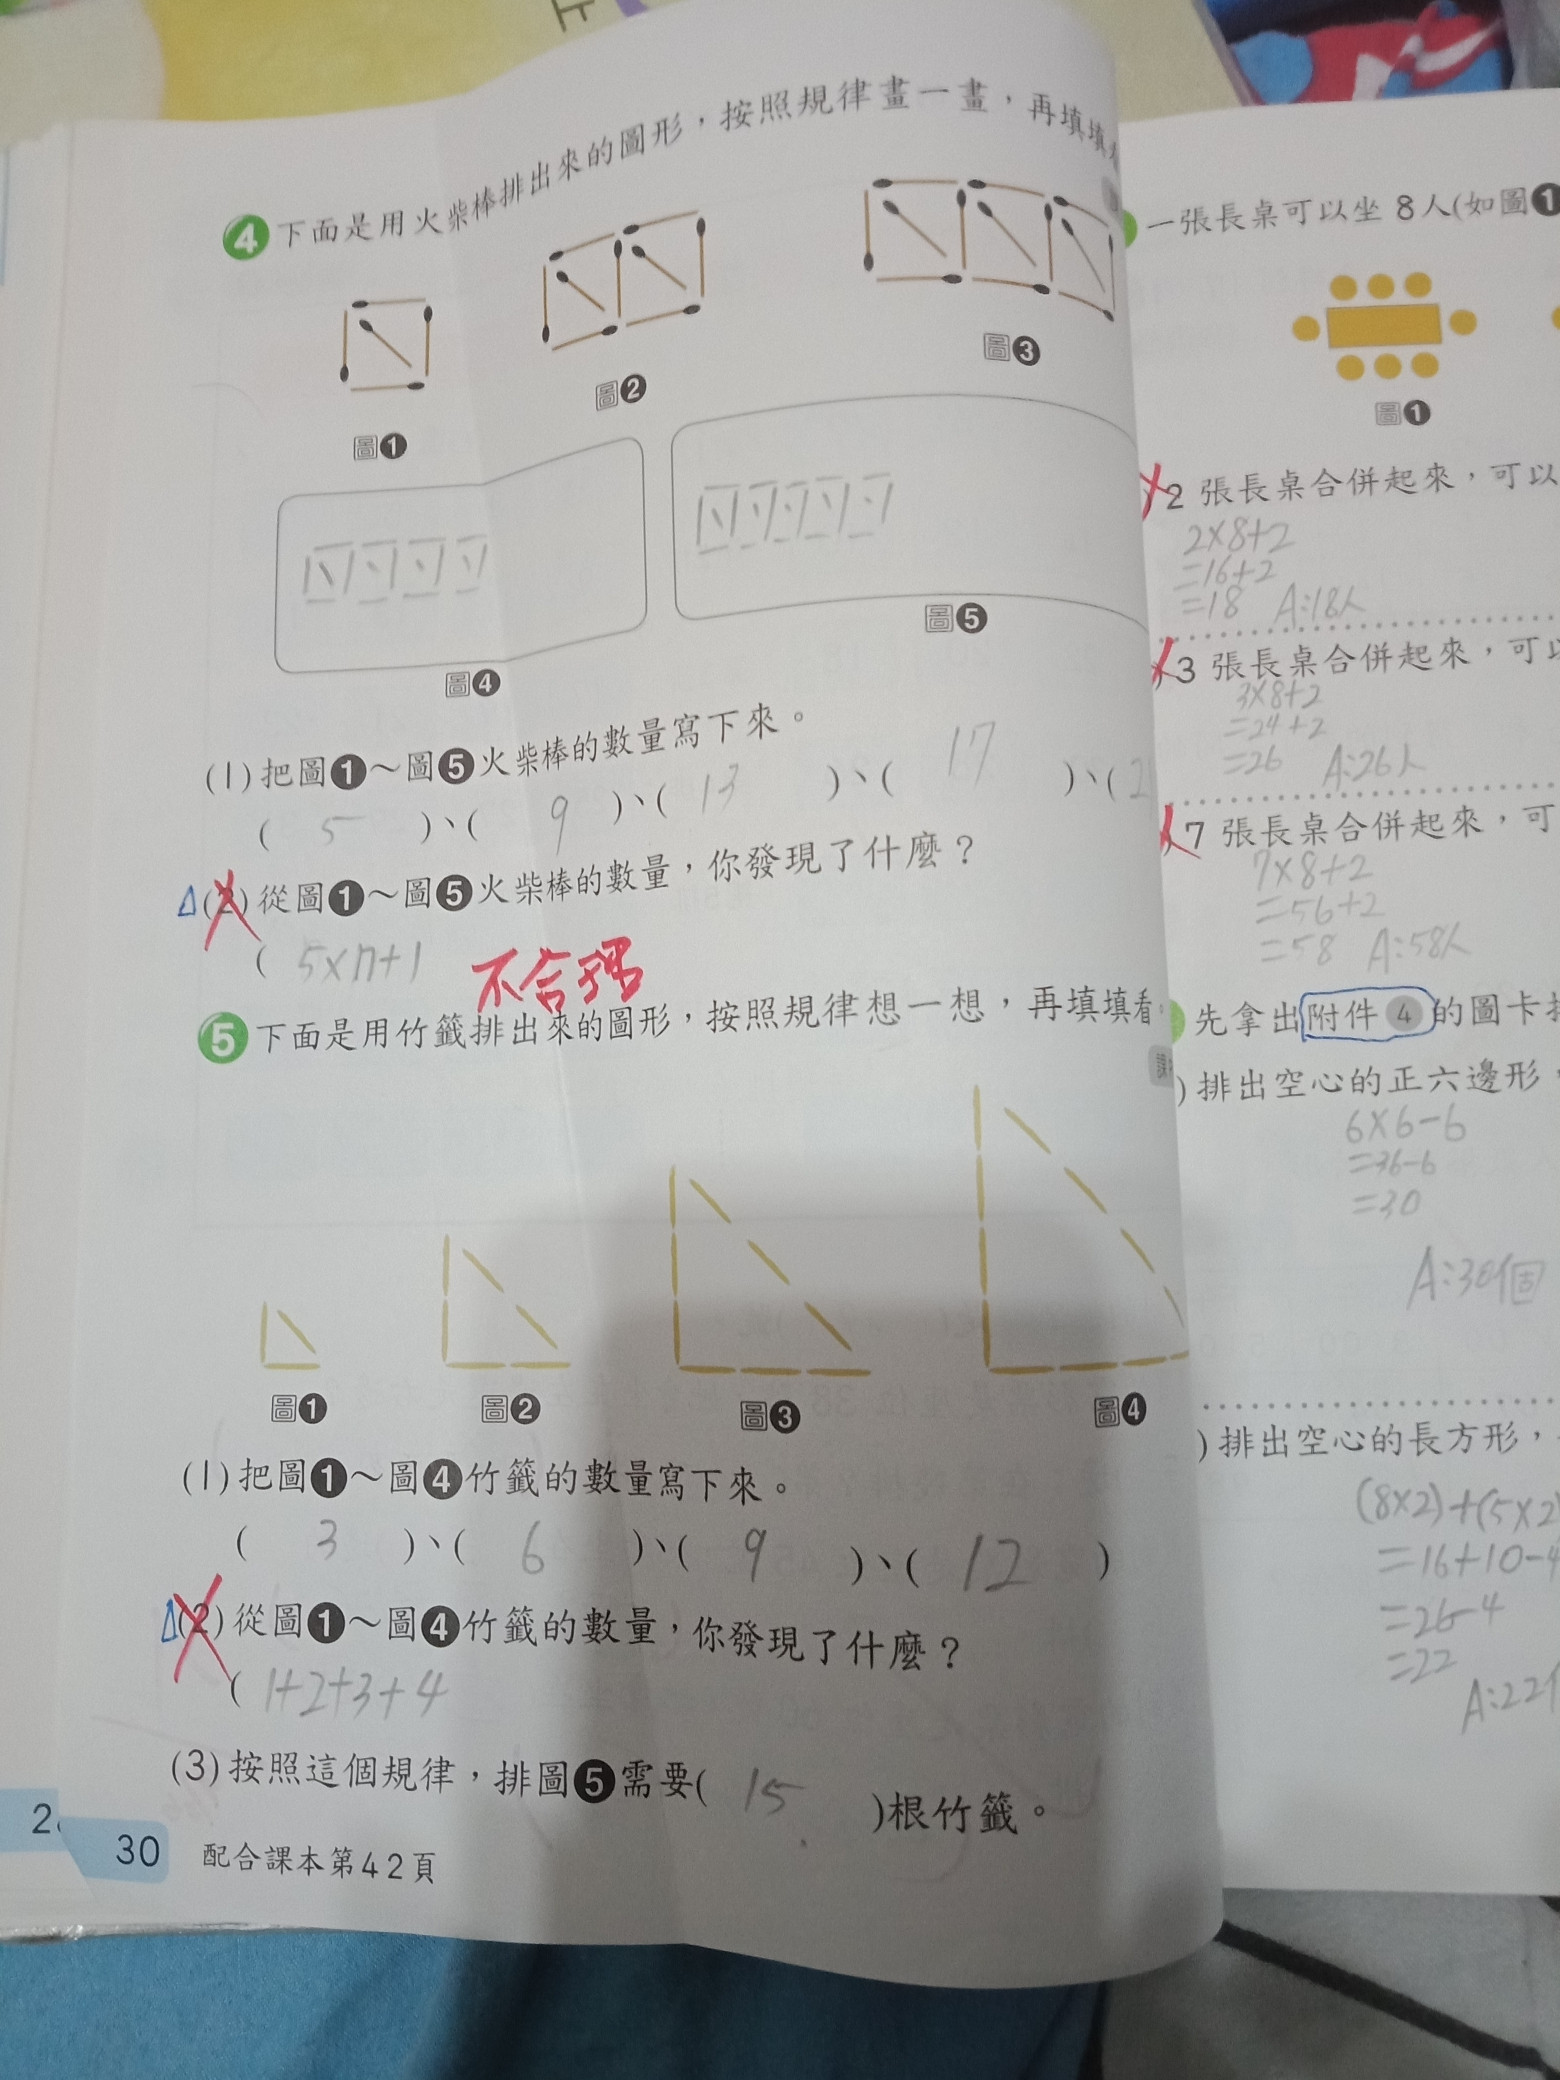 4 下面是用火柴棒排出來的圖形，按照規律畫一畫，再填填
圖1
圖2
圖3
圖4
圖5
(1) 把圖1～圖5火柴棒的數量寫下來。
( 5 )、( 9 )、( 13 )、( 17 )、( 2
△(2) 從圖1～圖5火柴棒的數量，你發現了什麼？
( 5×n+1
不合理
5 下面是用竹籤排出來的圖形，按照規律想一想，再填填看
圖1
圖2
圖3
圖4
(1) 把圖1～圖4竹籤的數量寫下來。
( 3 )、( 6 )、( 9 )、( 12 )
△(2) 從圖1～圖4竹籤的數量，你發現了什麼？
( 1+2+3+4
(3) 按照這個規律，排圖5需要( 15 )根竹籤。
2
30 配合課本第42頁
一張長桌可以坐 8人(如圖1
圖1
2 張長桌合併起來，可以
2×8+2
=16+2
=18 A:18人
3 張長桌合併起來，可以
3×8+2
=24+2
=26 A:26人
7 張長桌合併起來，可
7×8+2
=56+2
=58 A:58人
先拿出附件4的圖卡
) 排出空心的正六邊形，
6×6-6
=36-6
=30
A:30個
) 排出空心的長方形，
(8×2)+(5×2)
=16+10-4
=26-4
=22
A:22個